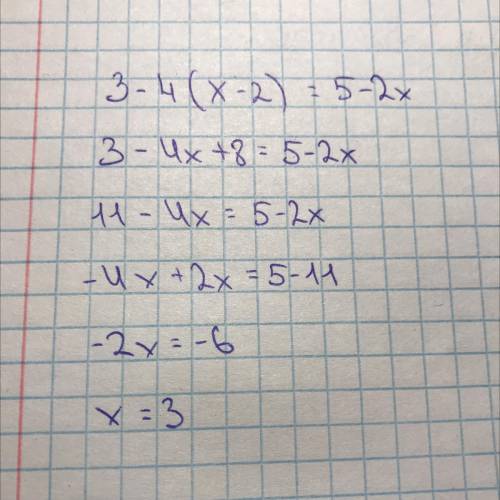 3 - 4(x - 2) = 5 - 2x
3 - 4x + 8 = 5 - 2x
11 - 4x = 5 - 2x
-4x + 2x = 5 - 11
-2x = -6
x = 3